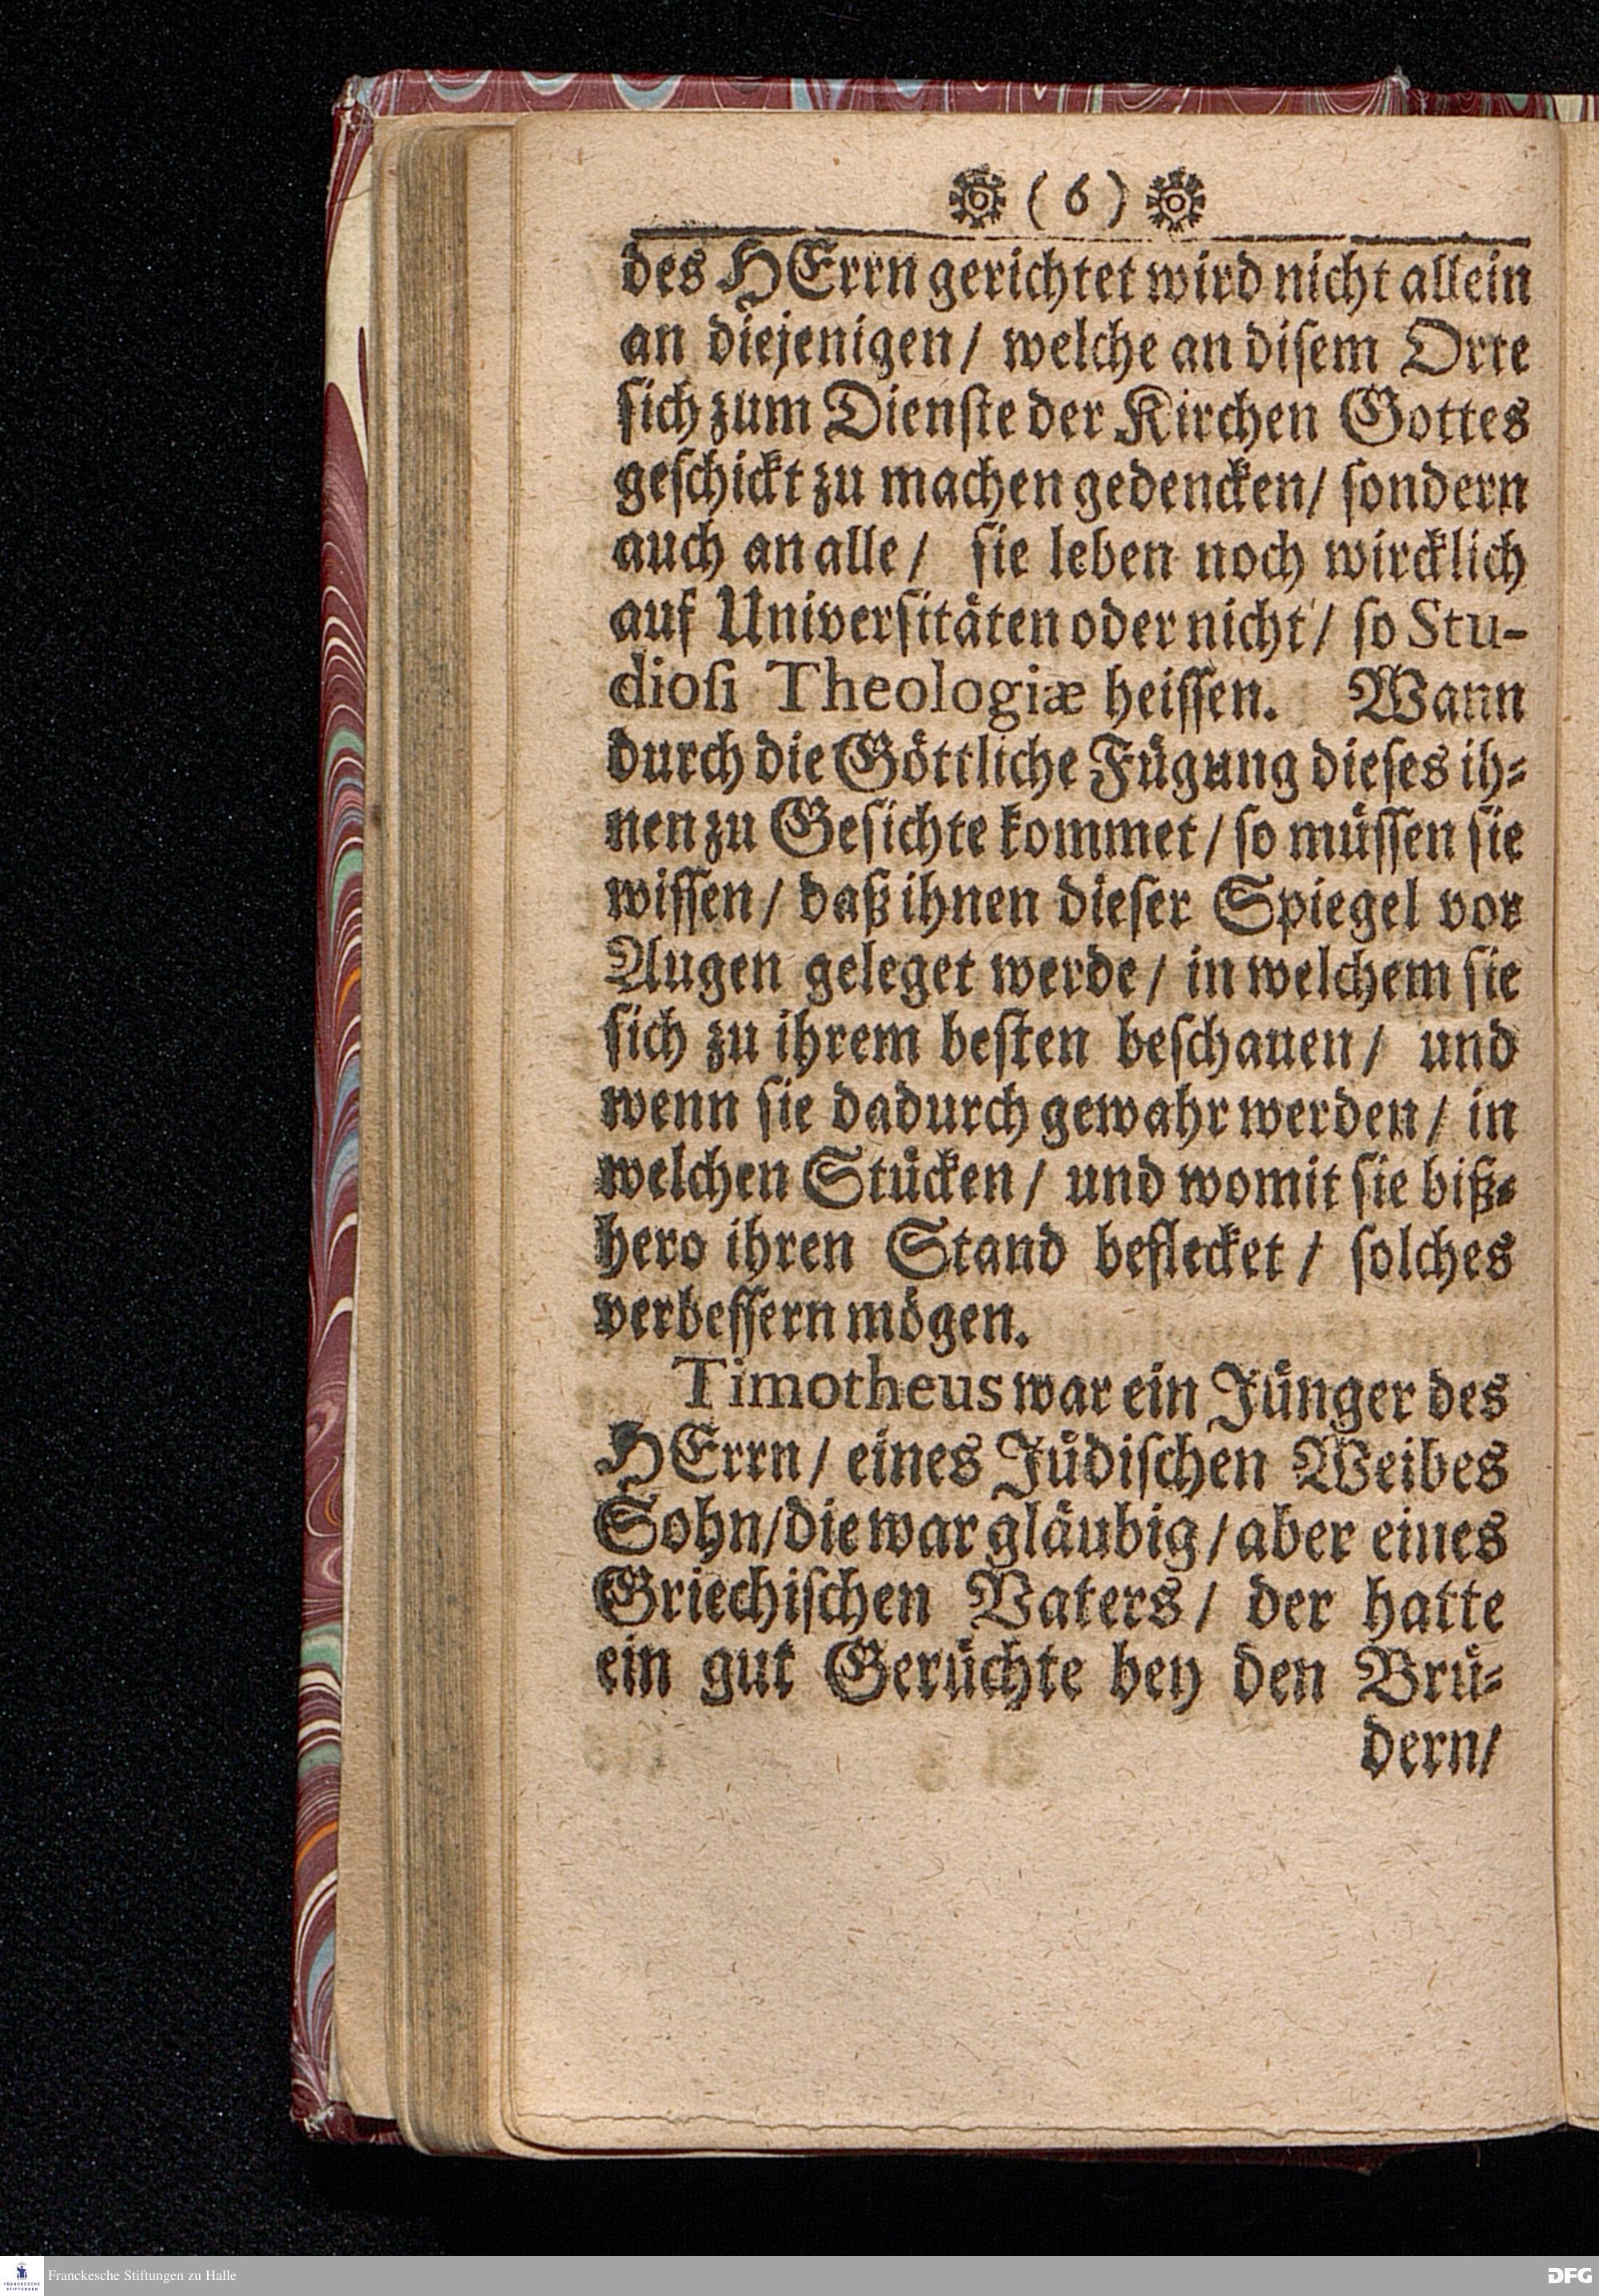 ( 6 )
des HErrn gerichtet wird nicht allein
an diejenigen / welche an disem Orte
sich zum Dienste der Kirchen Gottes
geschickt zu machen gedencken / sondern
auch an alle / sie leben noch wircklich
auf Universitäten oder nicht / so Stu-
diosi Theologiæ heissen. Wann
durch die Göttliche Fügung dieses ih-
nen zu Gesichte kommet / so müssen sie
wissen / daß ihnen dieser Spiegel vor
Augen geleget werde / in welchem sie
sich zu ihrem besten beschauen / und
wenn sie dadurch gewahr werden / in
welchen Stücken / und womit sie biß-
hero ihren Stand beflecket / solches
verbessern mögen.
Timotheus war ein Jünger des
HErrn / eines Jüdischen Weibes
Sohn / die war gläubig / aber eines
Griechischen Vaters / der hatte
ein gut Gerüchte bey den Brü-
dern /
FRANCKESCHE
STIFTUNGEN
Franckesche Stiftungen zu Halle
DFG